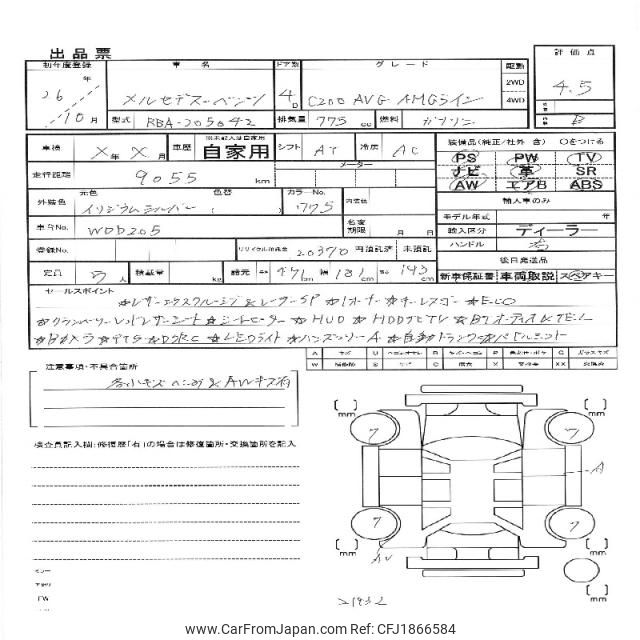 出品票
初年度登録 車名 ドア別 グレード 駆動 評価点
26年 メルセデス・ベンツ 4D C200 AVG AMGライン 2WD 4WD 4.5
10月 型式 RBA-205042 排気量 775 cc 燃料 ガソリン B
車検 X年X月 車歴 ※未記入は自家用 自家用 シフト AT 冷房 AC 装備品(純正/社外 含) Oをつける
PS PW TV
走行距離 9055 km メーター ナビ 革 SR
AW エアB ABS
元色 色替 カラーNo.
外装色 イリジウムシルバー ( ) 775 内装色 輸入車のみ
モデル年式 年
車台No. WDD205 名変期限 月 日 輸入区分 ディーラー
ハンドル 右
登録No. リサイクル預託金 20370 円 預託済 未預託 後日発送品
定員 5人 積載量 kg 諸元 長さ 471 cm 幅 181 cm 高さ 143 cm 新車保証書 車両取説 スペアキー
セールスポイント
☆レザーエクスクルーシブ&レーダーSP ☆1オーナー ☆キーレスゴー ☆ECO
☆クランベリーレッドレザーシート ☆シートヒーター ☆HUD ☆HDDナビTV ☆BTオーディオ&TEL
☆Bカメラ ☆PTS ☆D席 ☆LEDライト ☆ハンズフリーA ☆自動トランク ☆パドルシフト
注意事項・不具合箇所
各小キズヘコミ& AWキズ有
検査員記入欄:修復歴(有)の場合は修復箇所・交換箇所を記入
[ ] mm [ ] mm
7 7
A
7 7
[ ] mm [ ] mm
AW
21832
www.CarFromJapan.com | Ref:SC CFJ1866584